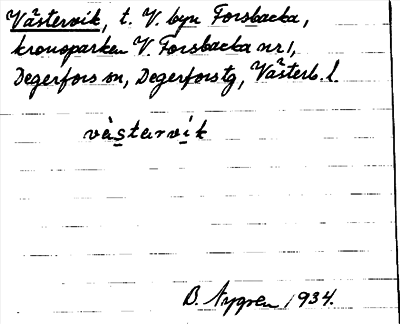 Västervik, t. V. byn Forsbacka,
kronoparken V. Forsbacka nr 1,
Degerfors sn, Degerfors tg, Västerb. l.
västarvik
B. Nygren 1934.